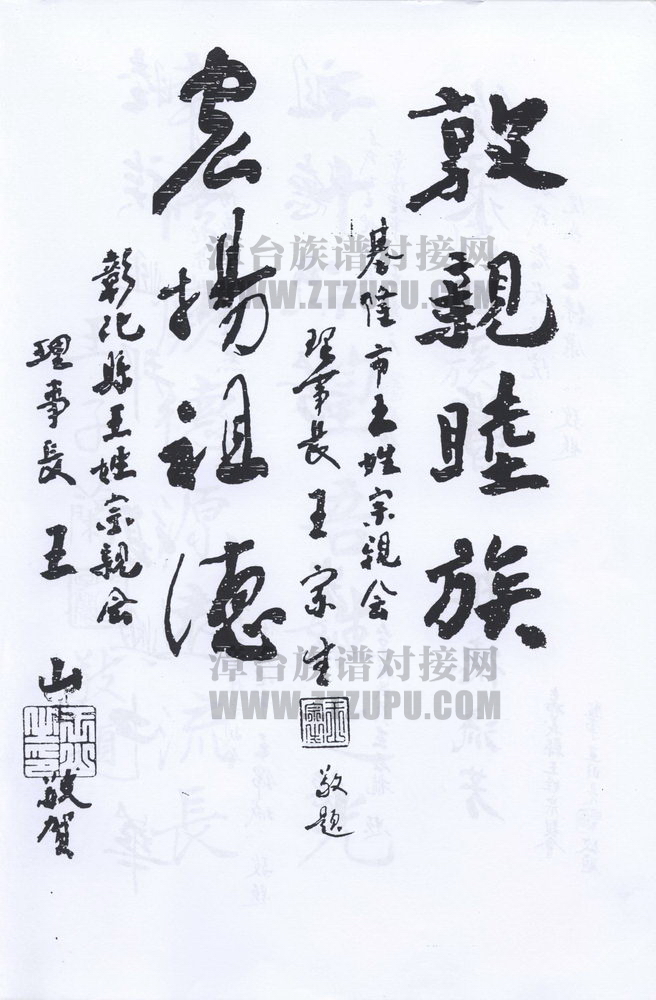 敦親睦族
基隆市王姓宗親会
理事長 王宗生 敬題
宏揚祖德
彰化縣王姓宗親会
理事長 王山 敬賀
漳台族谱对接网
WWW.ZTZUPU.COM
漳台族谱对接网
WWW.ZTZUPU.COM